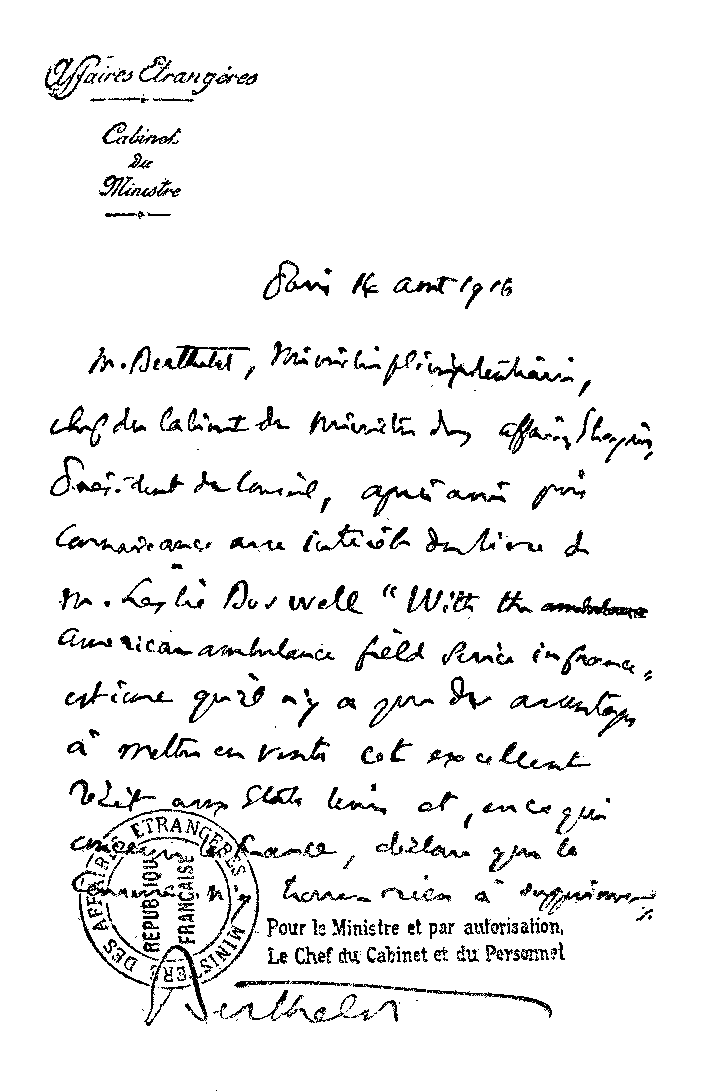 Affaires Etrangères
Cabinet
du
Ministre
Paris 14 aout 1916
M. Berthelot, Ministre plénipotentiaire,
chef du Cabinet du Ministre des affaires Etrangères,
Président du Conseil, après avoir pris
connaissance avec intérêt du livre de
M. Leslie Buswell "With the ambulance
American ambulance field service in france"
estime qu'il n'y a que des avantages
à mettre en vente cet excellent
récit aux Etats Unis et, en ce qui
concerne la france, déclare que la
n'y trouve rien à supprimer
MINISTERE DES AFFAIRES ETRANGERES
REPUBLIQUE
FRANÇAISE
Pour le Ministre et par autorisation,
Le Chef du Cabinet et du Personnel
Berthelot